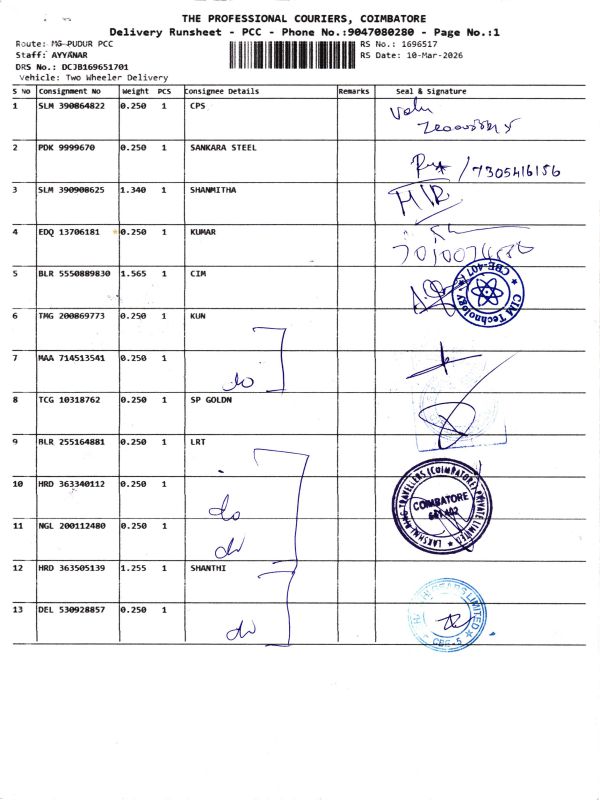 THE PROFESSIONAL COURIERS, COIMBATORE
Delivery Runsheet - PCC - Phone No.:9047080280 - Page No.:1
Route: MG-PUDUR PCC
Staff: AYYANAR
DRS No.: DCJB169651701
Vehicle: Two Wheeler Delivery
RS No.: 1696517
RS Date: 10-Mar-2026
S No Consignment No Weight PCS Consignee Details Remarks Seal & Signature
1 SLM 390864822 0.250 1 CPS
2 PDK 9999670 0.250 1 SANKARA STEEL
/ 7305416156
3 SLM 390908625 1.340 1 SHANMITHA
4 EDQ 13706181 0.250 1 KUMAR
5 BLR 5550889830 1.565 1 CIM
CIM Technology ★ CBE-407 ★
6 TMG 200869773 0.250 1 KUN
7 MAA 714513541 0.250 1
do
8 TCG 10318762 0.250 1 SP GOLDN
9 BLR 255164881 0.250 1 LRT
10 HRD 363340112 0.250 1
do
TRAVELLERS (COIMBATORE) PRIVATE LIMITED ★
COIMBATORE
11 NGL 200112480 0.250 1
do
12 HRD 363505139 1.255 1 SHANTHI
13 DEL 530928857 0.250 1
do
LIMITED
CBE-5